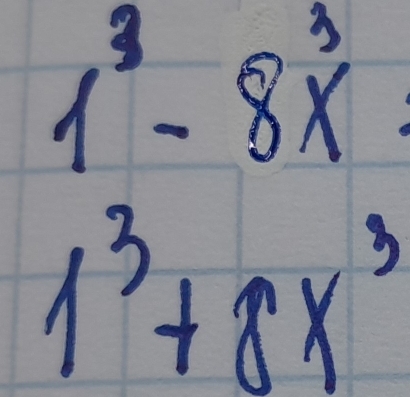 1³ - 8x³ =
1³ + 8x³